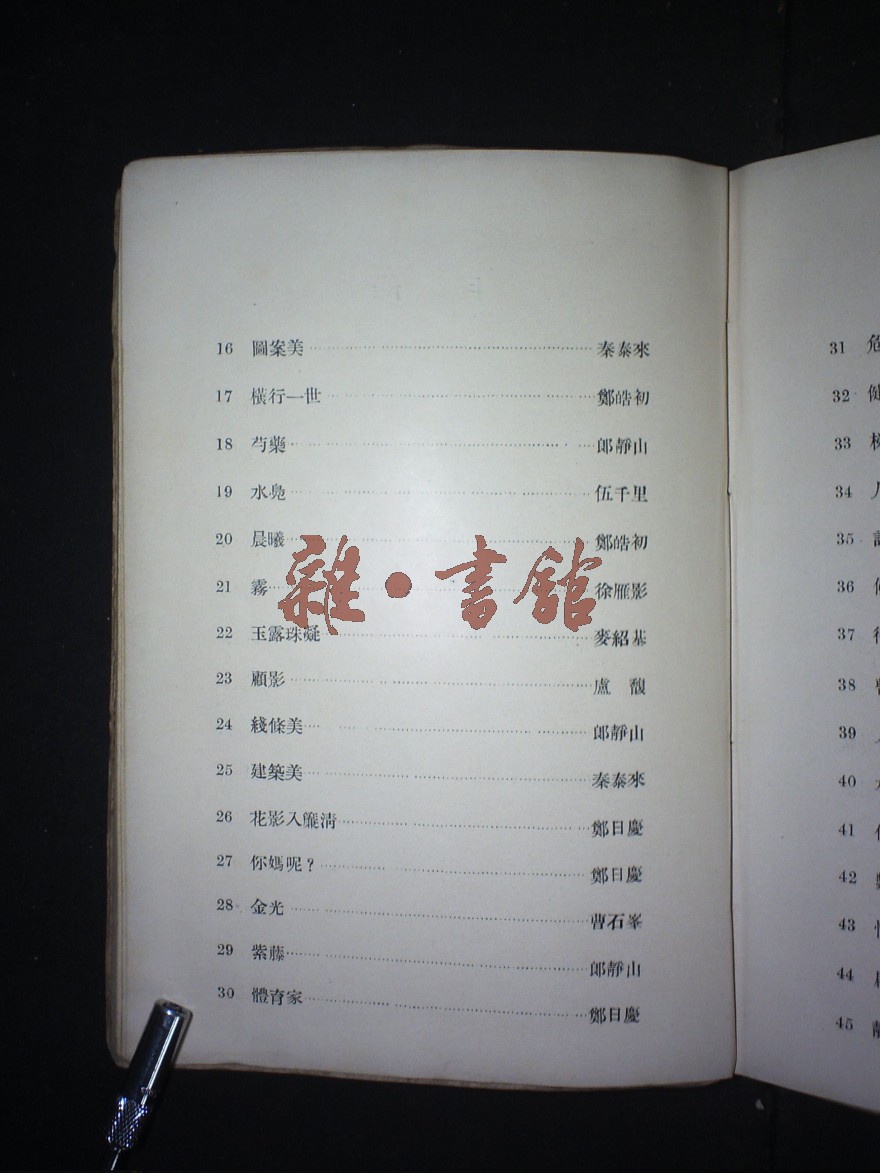 16 圖案美 秦泰來
17 橫行一世 鄭皓初
18 芍藥 郎靜山
19 水鳧 伍千里
20 晨曦 鄭皓初
21 霧 徐雁影
22 玉露珠凝 麥紹基
23 顧影 盧馥
24 綫條美 郎靜山
25 建築美 秦泰來
26 花影入簾清 鄭日慶
27 你媽呢？ 鄭日慶
28 金光 曹石峯
29 紫藤 郎靜山
30 體育家 鄭日慶
雜·書館
31
32
33
34
35
36
37
38
39
40
41
42
43
44
45